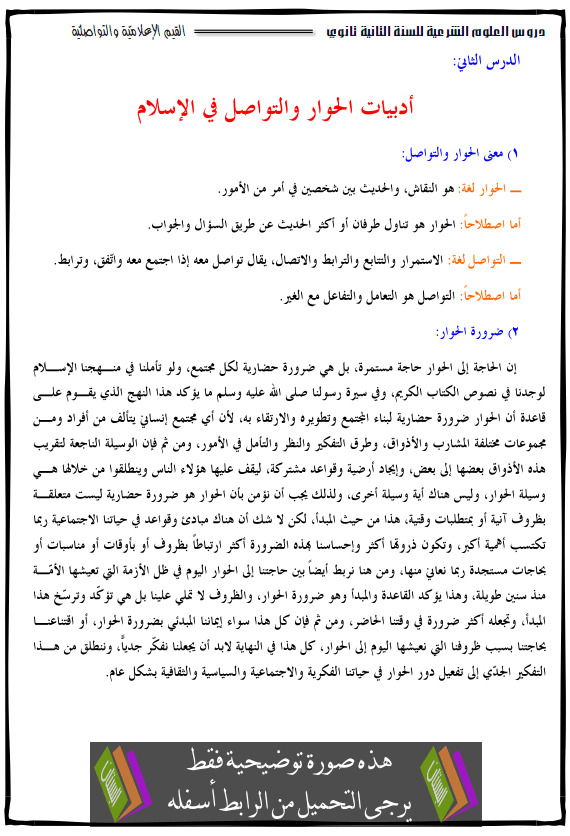 دروس العلوم الشرعية للسنة الثانية ثانوي القيم الإعلاميّة والتواصليّة
الدرس الثاني:
أدبيات الحوار والتواصل في الإسلام
١) معنى الحوار والتواصل:
ــ الحوار لغة: هو النقاش، والحديث بين شخصين في أمر من الأمور.
أما اصطلاحاً: الحوار هو تناول طرفان أو أكثر الحديث عن طريق السؤال والجواب.
ــ التواصل لغة: الاستمرار والتتابع والترابط والاتصال، يقال تواصل معه إذا اجتمع معه واتّفق، وترابط.
أما اصطلاحاً: التواصل هو التعامل والتفاعل مع الغير.
٢) ضرورة الحوار:
إن الحاجة إلى الحوار حاجة مستمرة، بل هي ضرورة حضارية لكل مجتمع، ولو تأملنا في منهجنا الإسلام
لوجدنا في نصوص الكتاب الكريم، وفي سيرة رسولنا صلى الله عليه وسلم ما يؤكد هذا النهج الذي يقوم على
قاعدة أن الحوار ضرورة حضارية لبناء المجتمع وتطويره والارتقاء به، لأن أي مجتمع إنساني يتألف من أفراد ومن
مجموعات مختلفة المشارب والأذواق، وطرق التفكير والنظر والتأمل في الأمور، ومن ثم فإن الوسيلة الناجعة لتقريب
هذه الأذواق بعضها إلى بعض، وإيجاد أرضية وقواعد مشتركة، ليقف عليها هؤلاء الناس وينطلقوا من خلالها هي
وسيلة الحوار، وليس هناك أية وسيلة أخرى، ولذلك يجب أن نؤمن بأن الحوار هو ضرورة حضارية ليست متعلقة
بظروف آنية أو بمتطلبات وقتية، هذا من حيث المبدأ، لكن لا شك أن هناك مبادئ وقواعد في حياتنا الاجتماعية ربما
تكتسب أهمية أكبر، وتكون ذروتها أكثر وإحساسنا بهذه الضرورة أكثر ارتباطاً بظروف أو بأوقات أو مناسبات أو
بحاجات مستجدة ربما نعاني منها، ومن هنا نربط أيضاً بين حاجتنا إلى الحوار اليوم في ظل الأزمة التي تعيشها الأمّة
منذ سنين طويلة، وهذا يؤكد القاعدة والمبدأ وهو ضرورة الحوار، والظروف لا تملي علينا بل هي تؤكّد وترسّخ هذا
المبدأ، وتجعله أكثر ضرورة في وقتنا الحاضر، ومن ثم فإن كل هذا سواء إيماننا المبدئي بضرورة الحوار، أو اقتناعنا
بحاجتنا بسبب ظروفنا التي نعيشها اليوم إلى الحوار، كل هذا في النهاية لابد أن يجعلنا نفكّر جدياً، وننطلق من هذا
التفكير الجدّي إلى تفعيل دور الحوار في حياتنا الفكرية والاجتماعية والسياسية والثقافية بشكل عام.
هذه صورة توضيحية فقط
يرجى التحميل من الرابط أسفله